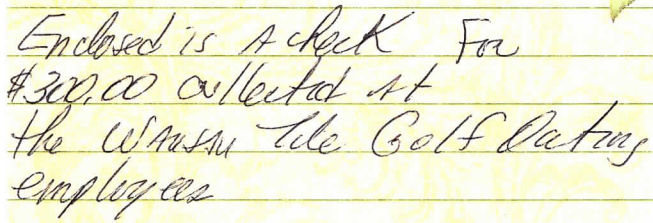 Enclosed is A check For
$300.00 collected At
the WAUSAU Tile Golf Outing
employees